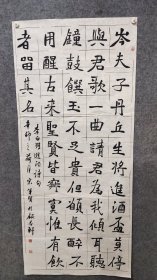 岑夫子丹丘生将進酒盃莫停
與君歌一曲請君為我傾耳聽
鐘鼓饌玉不足貴但願長醉不
用醒古来聖賢皆寂寞惟有飲
者留其名
李白将進酒詩句